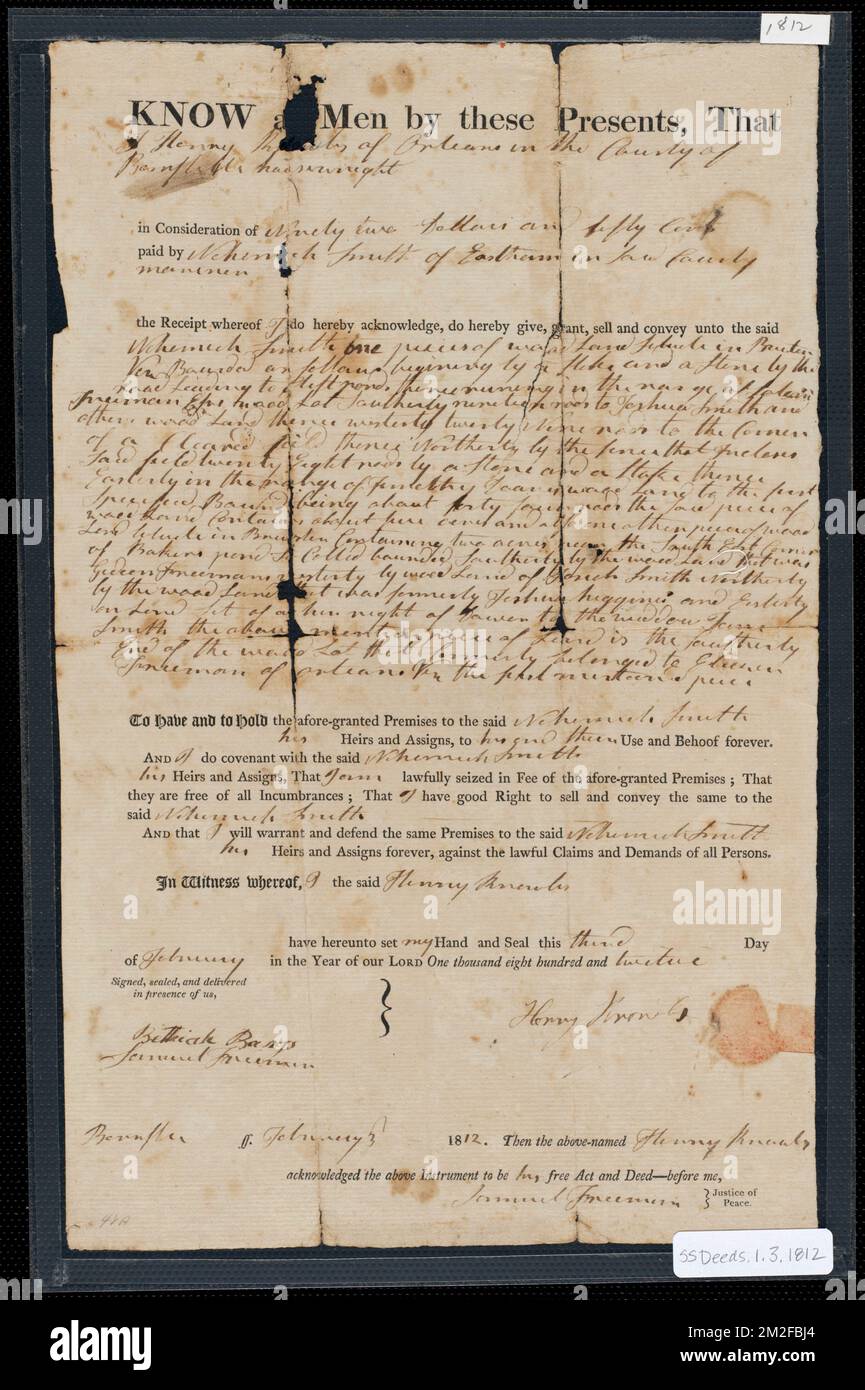 1812
KNOW a Men by these Presents, That
I Henry of Orleans in the County of
in Consideration of Ninety two Dollars and fifty Cents
paid by Nehemiah Smith of Eastham in County
the Receipt whereof I do hereby acknowledge, do hereby give, grant, sell and convey unto the said
Nehemiah Smith one piece of wood Land in
Bounded as follows begining by a Stake and a Stone by the
road to pond thence runing in the range of
Freeman wood Lot Southerly nineteen rods to Joshua Smith and
others wood Land thence westerly twenty nine rods to the Corner
of a Cleared field thence Northerly by the fence that Incloses
Said field twenty Eight rods by a Stone and a Stake thence
Easterly in the range of wood Land to the first
Specified Bound being about forty rods the said piece of
wood Land Contains about acres and piece of wood
Land in Brewster Containing two acres near the South East Corner
of Bakers pond So Called bounded Southerly by the wood Land that was
Gideon Freemans westerly by wood Land of Smith Northerly
by the wood Land that was formerly Joshua Higgins and Easterly
on Land Set of as her right of Dower to the widdow
Smith the above piece of Land is the Southerly
End of the wood Lot that formerly belonged to
Freeman of Orleans the first mentioned piece
To Have and to Hold the afore-granted Premises to the said Nehemiah Smith
his Heirs and Assigns, to his and their Use and Behoof forever.
AND I do covenant with the said Nehemiah Smith
his Heirs and Assigns, That I am lawfully seized in Fee of the afore-granted Premises ; That
they are free of all Incumbrances ; That I have good Right to sell and convey the same to the
said Nehemiah Smith
AND that I will warrant and defend the same Premises to the said Nehemiah Smith
his Heirs and Assigns forever, against the lawful Claims and Demands of all Persons.
In Witness whereof, I the said Henry Knowles
have hereunto set my Hand and Seal this third Day
of February in the Year of our LORD One thousand eight hundred and twelve
Signed, sealed, and delivered
in presence of us,
Henry Knowles
Samuel Freeman
ss. February 3 1812. Then the above-named Henry Knowles
acknowledged the above Instrument to be his free Act and Deed—before me,
Samuel Freeman } Justice of
Peace.
SSDeeds.1.3.1812
alamy
alamy
Image ID: 2M2FBJ4
www.alamy.com